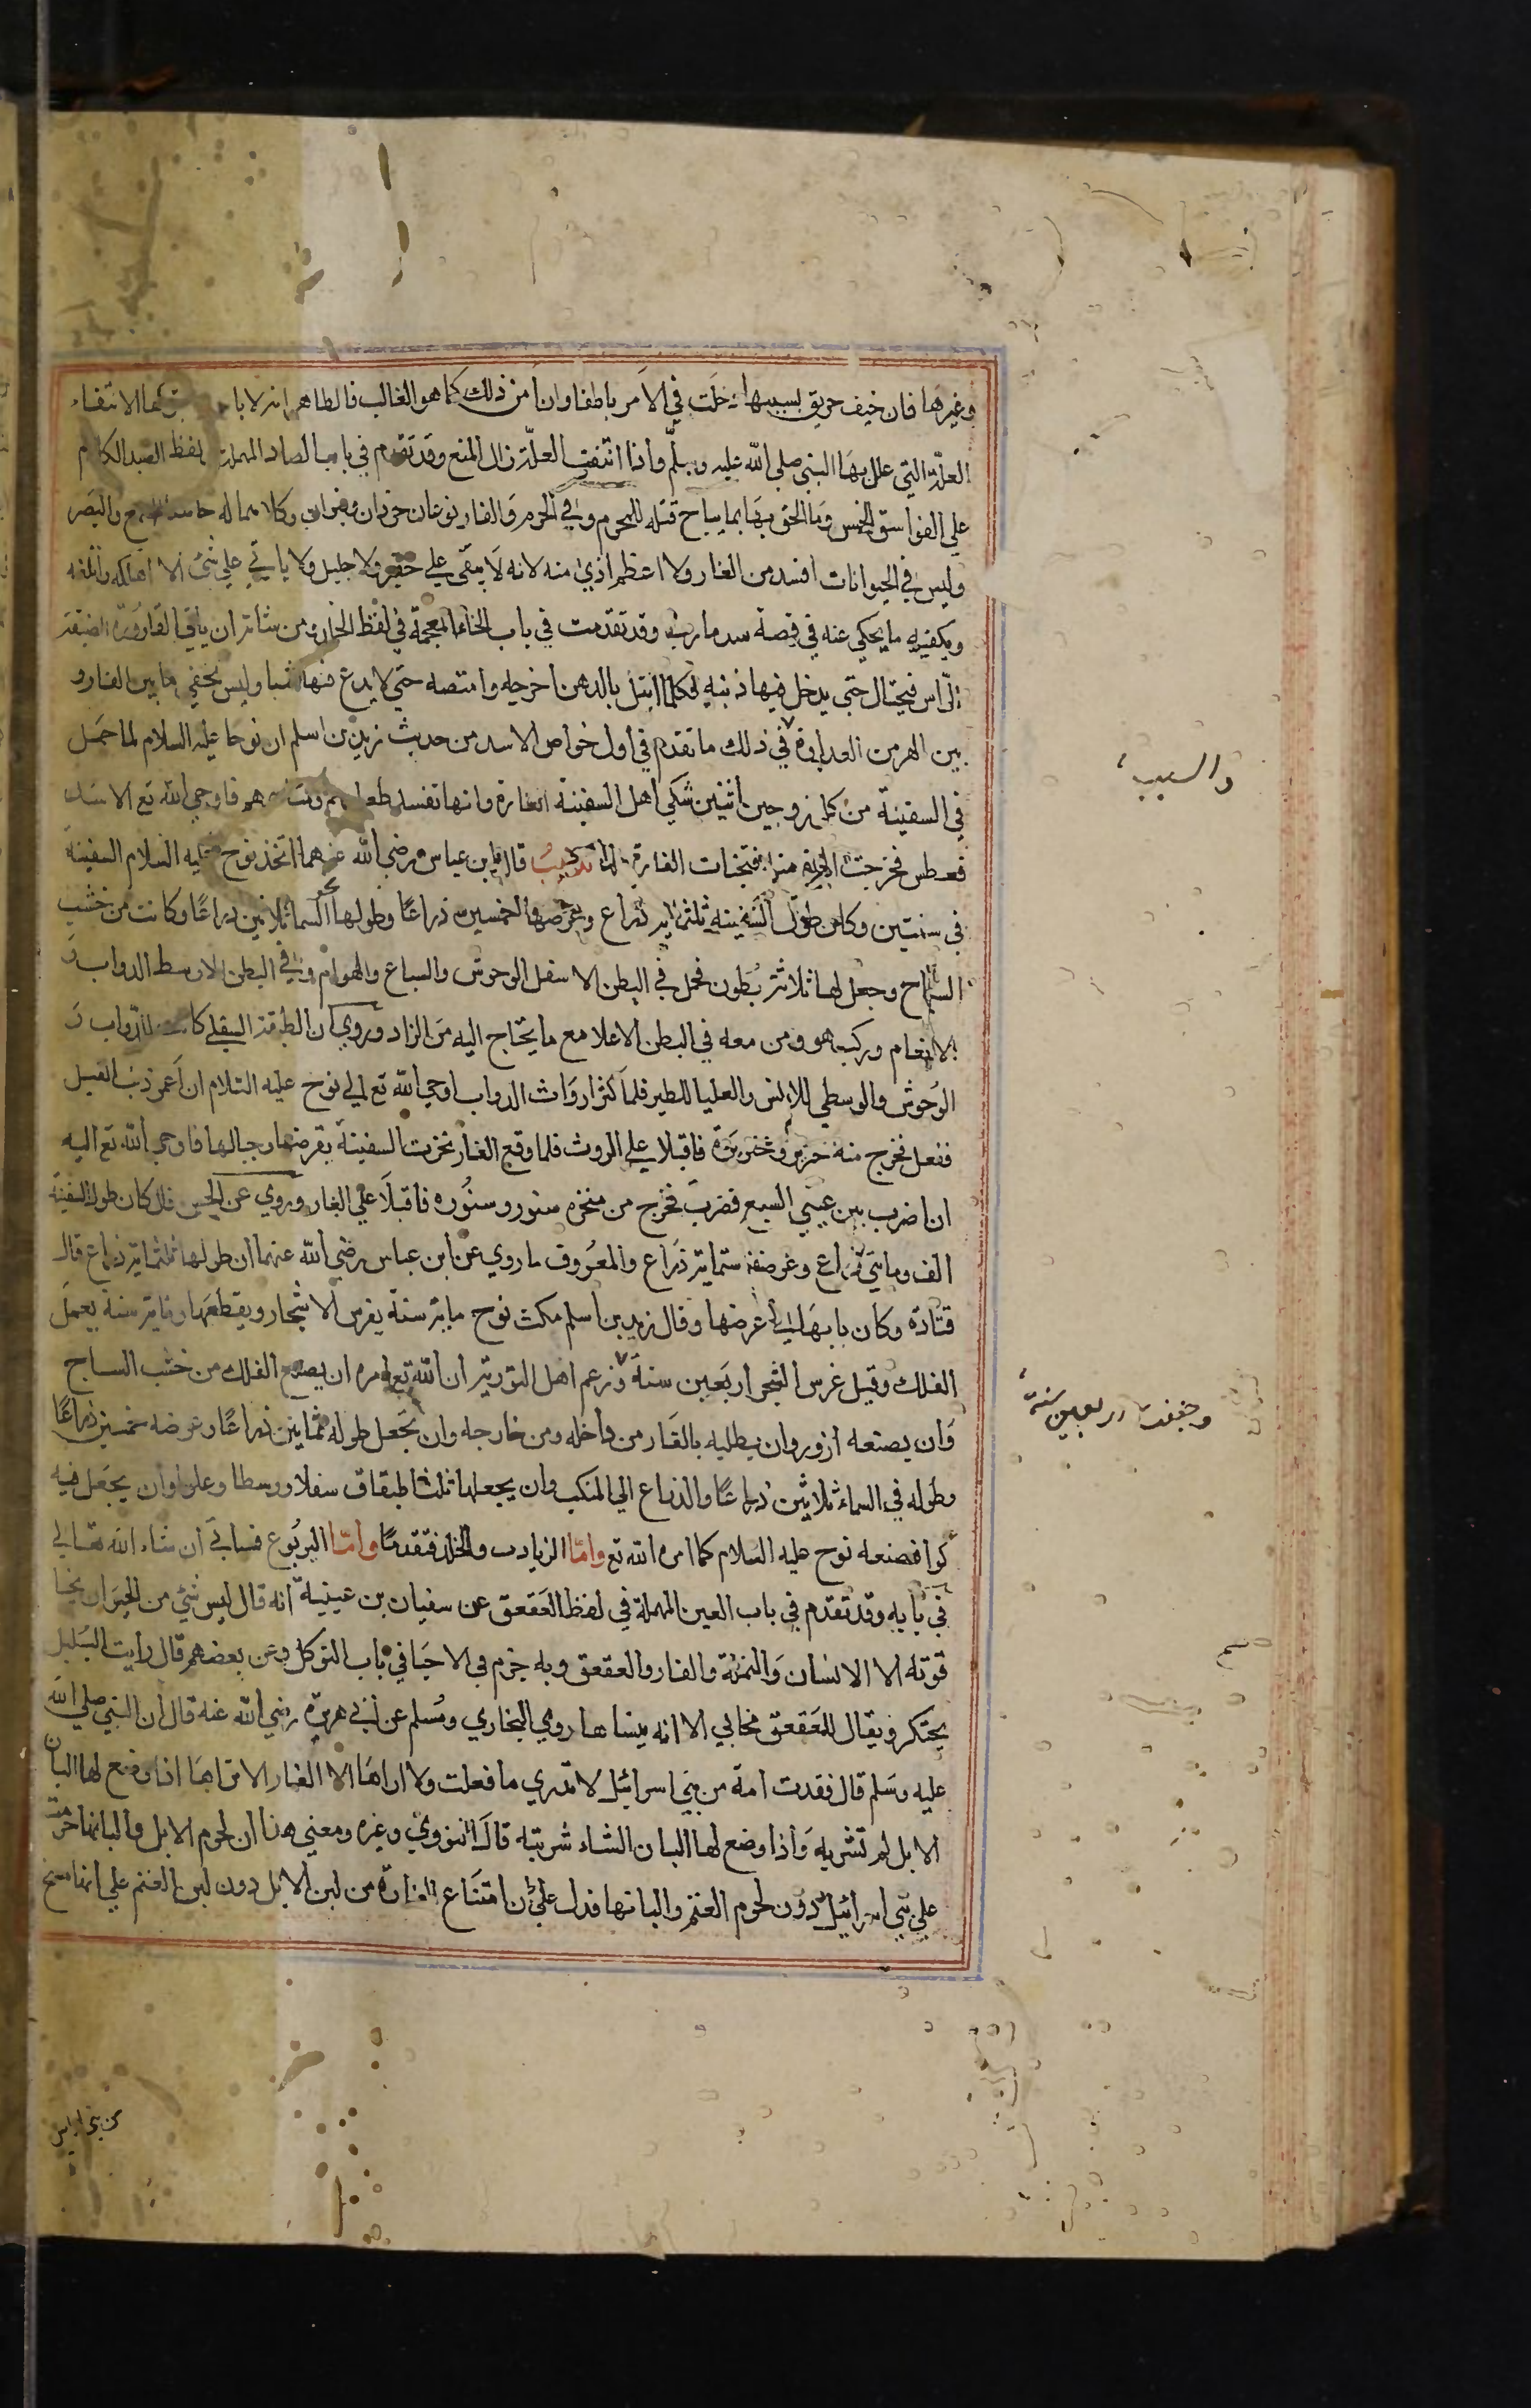 وغيرها فان خيف حريق بسببها دخلت في الامر باطفا وان أمن ذلك كما هو الغالب فالظاهر انه لا باس بتركها لانتفاء
العلة التي علل بها النبي صلى الله عليه وسلم واذا انتفت العلة زال المنع وقد تقدم في باب الصاد المهملة لفظ الصيد الكلام
علي الفواسق الخمس وما الحق بها بما يباح قتله للمحرم وفي الحرم والفار نوعان جرذان وفيران وكلاهما له حاسة السمع والبصر
وليس في الحيوانات افسد من الفار ولا اعظم اذي منه لانه لا يبقي علي حقير ولا جليل ولا ياتي علي شئ الا اهلكه واتلفه
ويكفيه ما يحكي عنه في قصة سد مارب وقد تقدمت في باب الخاء المعجمة في لفظ الخلد ومن شانه ان ياتي القارورة الضيقة
الراس فيحتال حتي يدخل فيها ذنبه فكلما ابتل بالدهن اخرجه وامتصه حتي لا يدع فيها شيا وليس يخفي ما بين الفار و
بين الهر من العداوة في ذلك ما تقدم في اول خواص الاسد من حديث زيد بن اسلم ان نوحا عليه السلام لما حمل
والسبب
في السفينة من كل زوجين اثنين شكي اهل السفينة الفارة وانها تفسد طعامهم ومتاعهم فاوحي الله تع الاسد
فعطس فخرجت الهرة منه فتخبات الفارة منها تذنيب قال ابن عباس رضي الله عنهما اتخذ نوح عليه السلام السفينة
في سنتين وكان طول السفينة ثلثماية ذراع وعرضها خمسين ذراعا وطولها نحو السما ثلاثين ذراعا وكانت من خشب
الساج وجعل لها ثلاثة بطون فحمل في البطن الاسفل الوحوش والسباع والهوام وفي البطن الاوسط الدواب و
الانعام وركب هو ومن معه في البطن الاعلا مع ما يحتاج اليه من الزاد وروي ان الطبقة السفلي كانت للدواب و
الوحوش والوسطي للانس والعليا للطير فلما كثر ارواث الدواب اوحي الله تع الي نوح عليه السلام ان اغمز ذنب الفيل
ففعل فخرج منه خنزير وخنزيرة فاقبلا علي الروث فلما وقع الفار بخرت السفينة يقرضها وحبالها فاوحي الله تع اليه
ان اضرب بين عيني السبع فضرب فخرج من منخره سنور وسنوره فاقبلا علي الفار وروي عن الحسن قال كان طول السفينة
الف ومايتي ذراع وعرضها ستماية ذراع والمعروف ما روي عن ابن عباس رضي الله عنهما ان طولها ثلثماية ذراع قال
قتادة وكان بابها في عرضها وقال زيد بن اسلم مكث نوح ماية سنة يغرس الاشجار ويقطعها وماية سنة يعمل
الفلك وقيل غرس الشجر اربعين سنة وزعم اهل التورية ان الله تع امره ان يصنع الفلك من خشب الساج
وجففه اربعين سنة
وان يصنعه ازور وان يطليه بالقار من داخله ومن خارجه وان يجعل طوله ثمانين ذراعا وعرضه خمسين ذراعا
وطوله في السماء ثلاثين ذراعا والذراع الي المنكب وان يجعلها ثلث طبقات سفلا ووسطا وعلوا وان يجعل فيه
كوا فصنعه نوح عليه السلام كما امره الله تع واما الزباب والخلد فتقدما واما اليربوع فسياتي ان شاء الله تعالي
في بابه وقد تقدم في باب العين المهملة في لفظ العقعق عن سفيان بن عيينة انه قال ليس شئ من الحيوان يخبا
قوته الا الانسان والنملة والفار والعقعق وبه جزم في الاحيا في باب التوكل وعن بعضهم قال رايت البلبل
يحتكر ويقال للعقعق مخابي الا انه ينساها روي البخاري ومسلم عن ابي هريرة رضي الله عنه قال ان النبي صلي الله
عليه وسلم قال فقدت امة من بني اسرائيل لا تدري ما فعلت ولا اراها الا الفار الا تراها اذا وضع لها البان
الابل لم تشربه واذا وضع لها البان الشاء شربته قال النووي وغيره ومعني هذا ان لحوم الابل والبانها حرمت
علي بني اسرائيل دون لحوم الغنم والبانها فدل علي ان امتناع الفارة من لبن الابل دون لبن الغنم علي انها مسخ
من بني اسراي